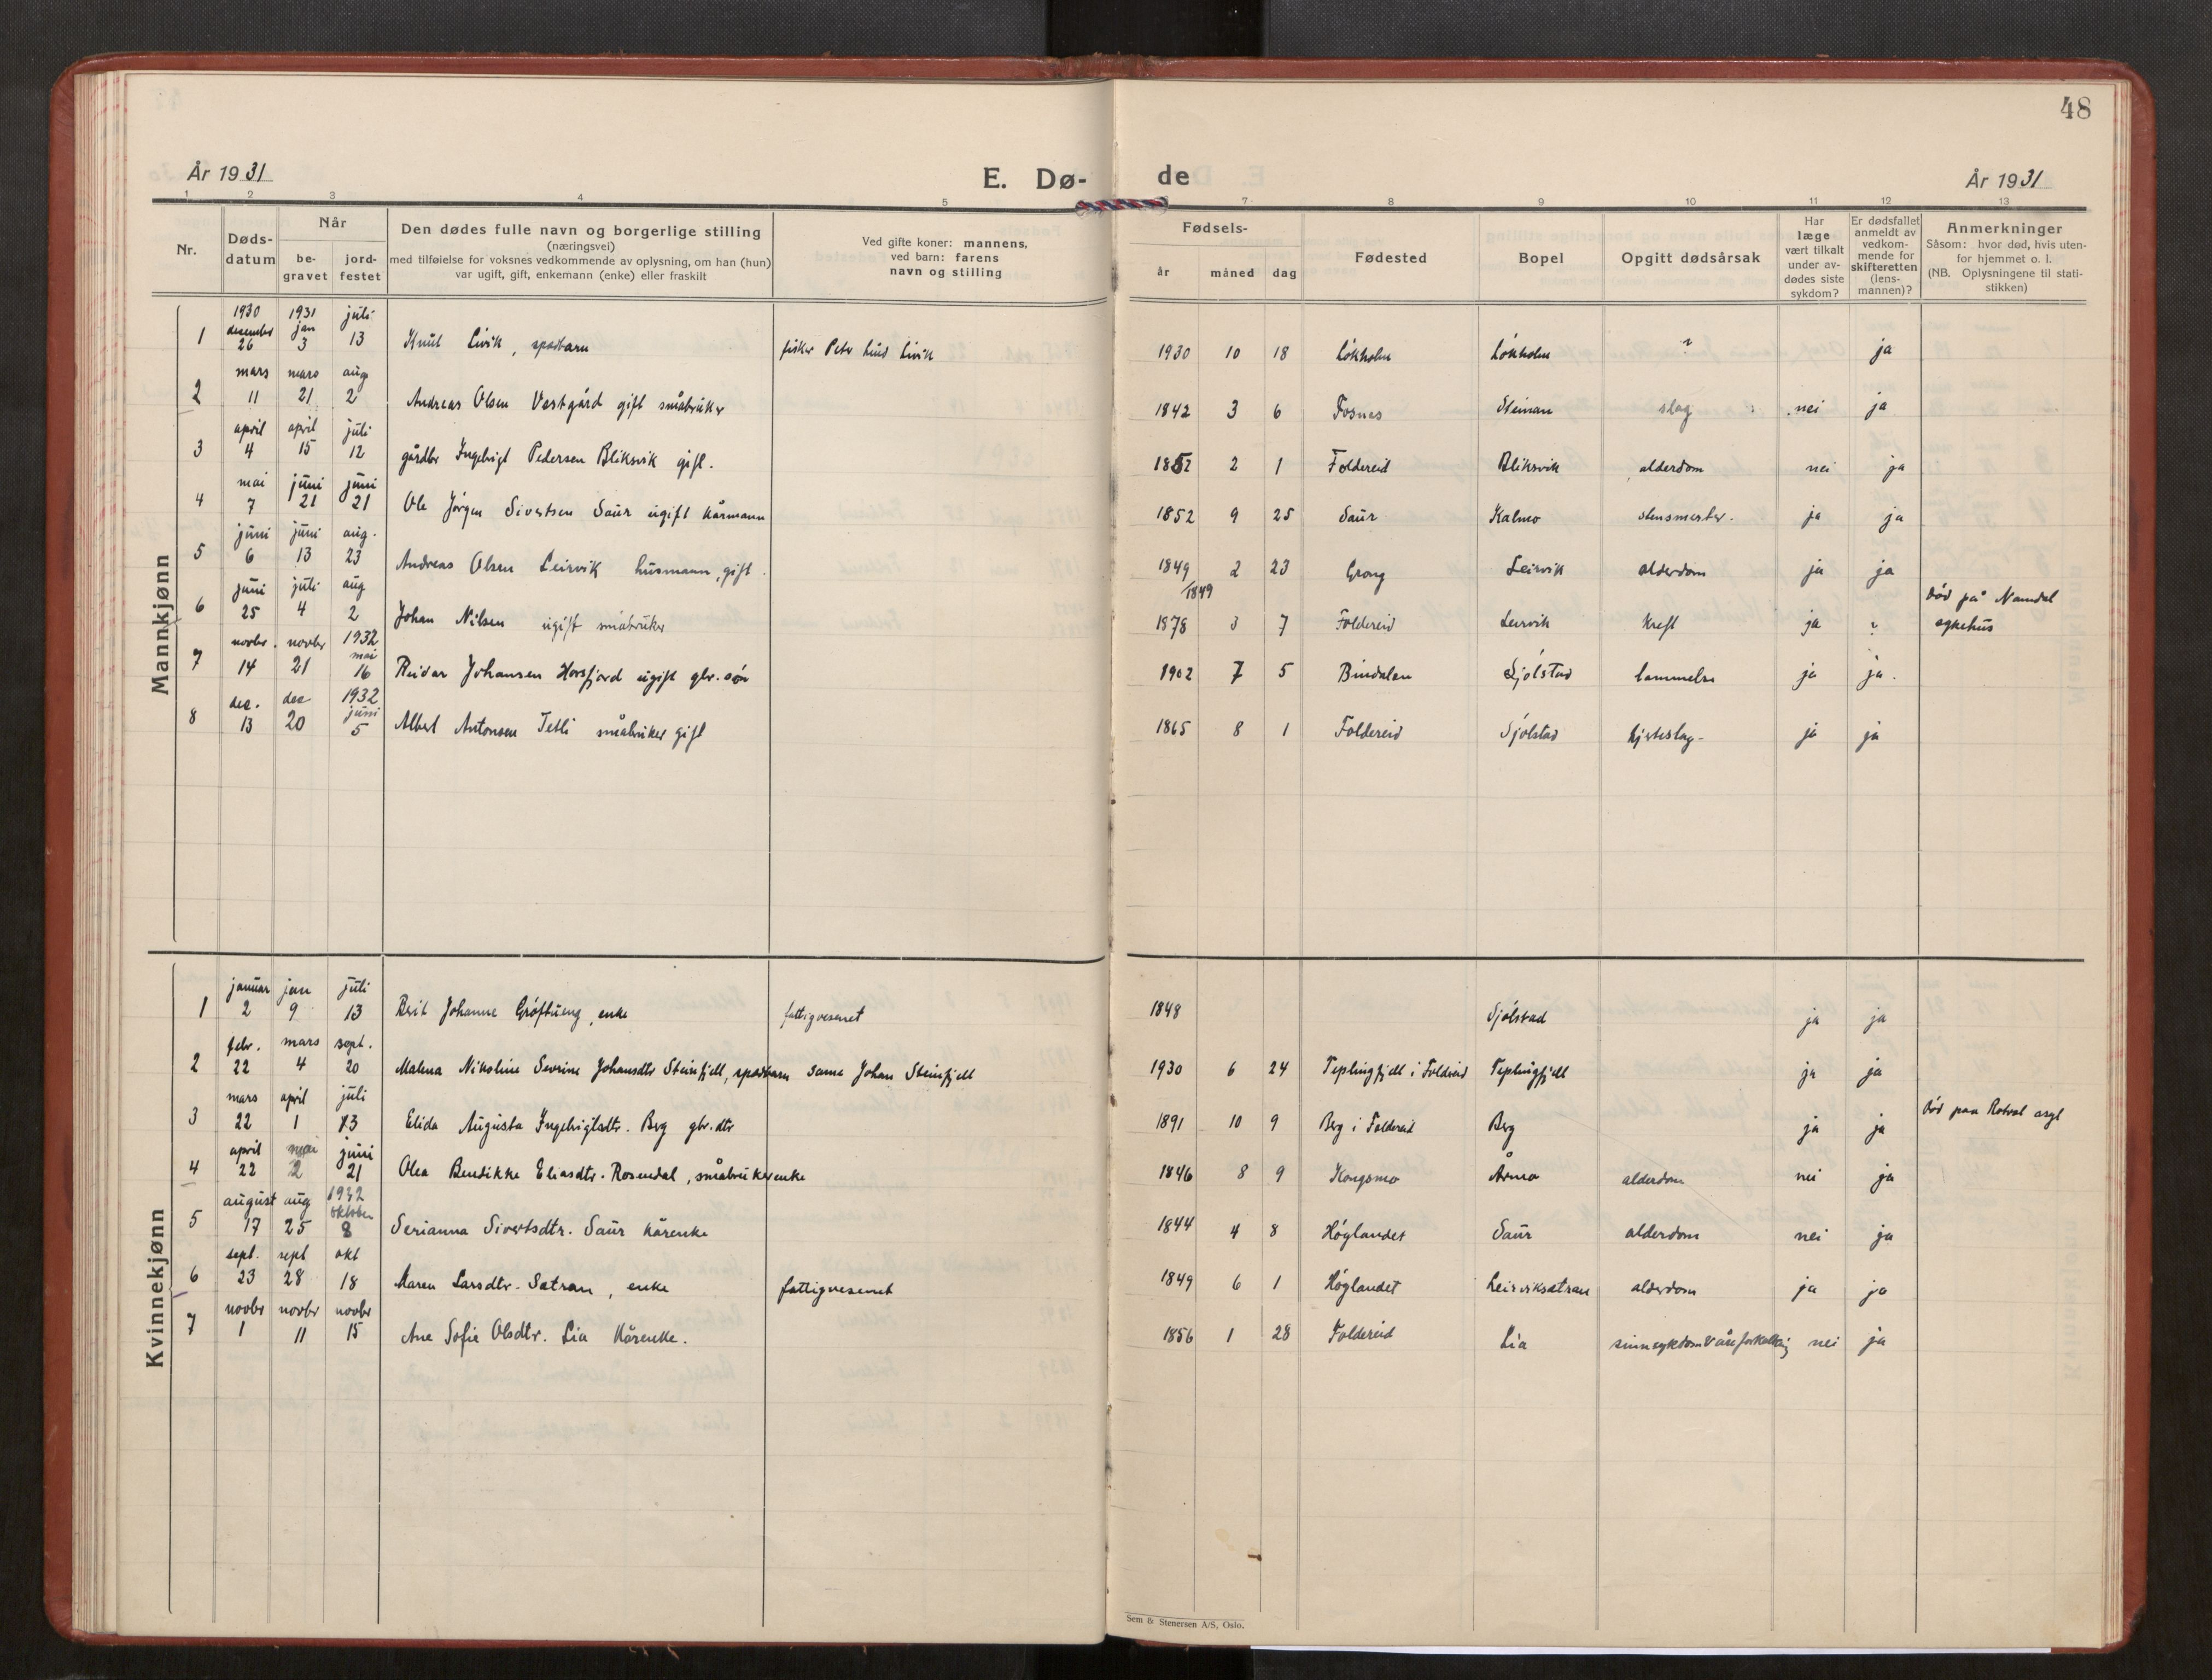 48
År 1931
E. Dø-
de
År 1931
1 2 3 4 5 7 8 9 10 11 12 13
Nr.
Døds-
datum
Når
be-
gravet
jord-
festet
Den dødes fulle navn og borgerlige stilling
(næringsvei)
med tilføielse for voksnes vedkommende av oplysning, om han (hun)
var ugift, gift, enkemann (enke) eller fraskilt
Ved gifte koner: mannens,
ved barn: farens
navn og stilling
Fødsels-
år måned dag
Fødested
Bopel
Opgitt dødsårsak
Har
læge
vært tilkalt
under av-
dødes siste
sykdom?
Er dødsfallet
anmeldt av
vedkom-
mende for
skifteretten
(lens-
mannen)?
Anmerkninger
Såsom: hvor død, hvis uten-
for hjemmet o. l.
(NB. Oplysningene til stati-
stikken)
Mannkjønn
1930 1931 juli
desember jan
1 26 3 13 Knut Livik, spedbarn fisker Petr Livik 1930 10 18 Lökholm Lökholm ? ja
mars mars aug
2 11 21 2 Andreas Olsen Vestgård gift småbruker 1842 3 6 Fosnes Steinan slag nei ja
april april juli
3 4 15 12 gårdbr Ingebrigt Pedersen Bliksvik gift. 1852 2 1 Foldereid Bliksvik alderdom nei ja
mai juni juni
4 7 21 21 Ole Jörgen Sivertsen Saur ugift kårmann 1852 9 25 Saur Kalmo ja ja
juni juni aug.
5 6 13 23 Andreas Olsen Leirvik husmann, gift. 1849 2 23 Grong Leirvik alderdom ja ja
1849
juni juli aug
6 25 4 2 Johan Nilsen ugift småbruker 1878 3 7 Foldereid Leirvik kreft ja ? Död på Namdal
sykehus
novbr. novbr 1932
mai
7 14 21 16 Reidar Johansen Horsfjord ugift gbr. sön 1902 7 5 Bindalen Sjölstad lammelse ja ja.
des. des 1932
juni
8 13 20 5 Albert Antonsen Tetli småbruker gift 1865 8 1 Foldereid Sjölstad hjerteslag- ja ja
Kvinnekjønn
januar jan juli
1 2 9 13 Berit Johanne Gröftueng, enke fattigvesenet 1848 Sjölstad ja ja
febr. mars sept.
2 22 4 20 Malena Nikoline Sevrine Johansdtr Steinfjell, spedbarn same Johan Steinfjell 1930 6 24 Teplingfjell i Foldreid Teplingfjell ja ja
mars april juli
3 22 1 13 Elida Augusta Ingebrigtsdtr. Berg gbr. dtr 1891 10 9 Berg i Foldereid Berg ja ja Död paa Rotvol asyl
april mai juni
4 22 2 21 Olea Bendikke Eliasdtr. Rosendal, småbrukerenke 1846 8 9 Kongsmo Årmo alderdom nei ja
august aug 1932
oktober
5 17 25 8 Serianna Sivertsdtr. Saur kårenke 1844 4 8 Höylandet Saur alderdom nei ja
sept. sept okt
6 23 28 18 Maren Larsdtr. Sætran, enke fattigvesenet 1849 6 1 Höylandet Leirviksætran alderdom ja ja
novbr novbr novbr
7 1 11 15 Ane Sofie Olsdtr. Lia Kårenke. 1856 1 28 Foldereid Lia sinnsykdom & åreforkalkning nei ja
Sem & Stenersen A/S, Oslo.